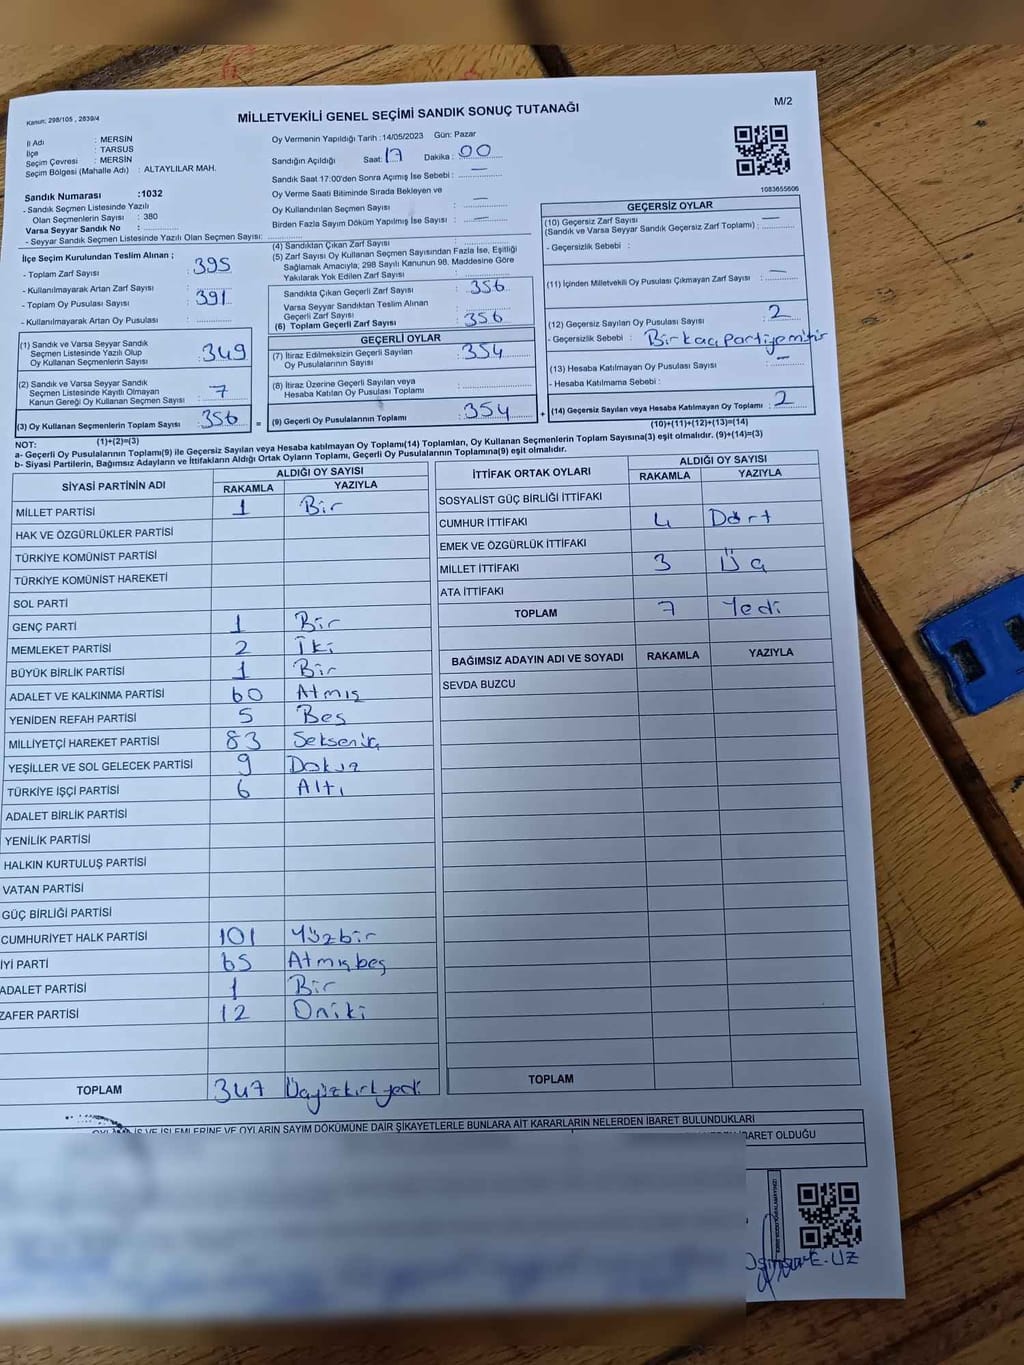 M/2
Kanun: 298/105 , 2839/4
MİLLETVEKİLİ GENEL SEÇİMİ SANDIK SONUÇ TUTANAĞI
İl Adı : MERSİN
İlçe : TARSUS
Seçim Çevresi : MERSİN
Seçim Bölgesi (Mahalle Adı) : ALTAYLILAR MAH.
Sandık Numarası :1032
- Sandık Seçmen Listesinde Yazılı
Olan Seçmenlerin Sayısı : 380
Varsa Seyyar Sandık No :
- Seyyar Sandık Seçmen Listesinde Yazılı Olan Seçmen Sayısı:
Oy Vermenin Yapıldığı Tarih :14/05/2023 Gün: Pazar
Sandığın Açıldığı Saat: 17 Dakika : 00
Sandık Saat 17:00'den Sonra Açımış İse Sebebi : —
Oy Verme Saati Bitiminde Sırada Bekleyen ve
Oy Kullandırılan Seçmen Sayısı : —
Birden Fazla Sayım Döküm Yapılmış İse Sayısı : —
1083655606
İlçe Seçim Kurulundan Teslim Alınan ;
- Toplam Zarf Sayısı : 395
- Kullanılmayarak Artan Zarf Sayısı :
- Toplam Oy Pusulası Sayısı : 391
- Kullanılmayarak Artan Oy Pusulası :
(1) Sandık ve Varsa Seyyar Sandık
Seçmen Listesinde Yazılı Olup
Oy Kullanan Seçmenlerin Sayısı : 349
(2) Sandık ve Varsa Seyyar Sandık
Seçmen Listesinde Kayıtlı Olmayan
Kanun Gereği Oy Kullanan Seçmen Sayısı : 7
(3) Oy Kullanan Seçmenlerin Toplam Sayısı : 356
(1)+(2)=(3)
(4) Sandıktan Çıkan Zarf Sayısı :
(5) Zarf Sayısı Oy Kullanan Seçmen Sayısından Fazla İse, Eşitliği
Sağlamak Amacıyla, 298 Sayılı Kanunun 98. Maddesine Göre
Yakılarak Yok Edilen Zarf Sayısı :
Sandıkta Çıkan Geçerli Zarf Sayısı : 356
Varsa Seyyar Sandıktan Teslim Alınan
Geçerli Zarf Sayısı :
(6) Toplam Geçerli Zarf Sayısı : 356
GEÇERLİ OYLAR
(7) İtiraz Edilmeksizin Geçerli Sayılan
Oy Pusulalarının Sayısı : 354
(8) İtiraz Üzerine Geçerli Sayılan veya
Hesaba Katılan Oy Pusulası Toplamı :
= (9) Geçerli Oy Pusulalarının Toplamı : 354 +
GEÇERSİZ OYLAR
(10) Geçersiz Zarf Sayısı
(Sandık ve Varsa Seyyar Sandık Geçersiz Zarf Toplamı) : —
- Geçersizlik Sebebi :
(11) İçinden Milletvekili Oy Pusulası Çıkmayan Zarf Sayısı : —
(12) Geçersiz Sayılan Oy Pusulası Sayısı : 2
- Geçersizlik Sebebi :
(13) Hesaba Katılmayan Oy Pusulası Sayısı : —
- Hesaba Katılmama Sebebi :
(14) Geçersiz Sayılan veya Hesaba Katılmayan Oy Toplamı : 2
(10)+(11)+(12)+(13)=(14)
NOT:
a- Geçerli Oy Pusulalarının Toplamı(9) ile Geçersiz Sayılan veya Hesaba katılmayan Oy Toplamı(14) Toplamları, Oy Kullanan Seçmenlerin Toplam Sayısına(3) eşit olmalıdır. (9)+(14)=(3)
b- Siyasi Partilerin, Bağımsız Adayların ve İttifakların Aldığı Ortak Oyların Toplamı, Geçerli Oy Pusulalarının Toplamına(9) eşit olmalıdır.
SİYASİ PARTİNİN ADI ALDIĞI OY SAYISI
RAKAMLA YAZIYLA
MİLLET PARTİSİ 1 Bir
HAK VE ÖZGÜRLÜKLER PARTİSİ
TÜRKİYE KOMÜNİST PARTİSİ
TÜRKİYE KOMÜNİST HAREKETİ
SOL PARTİ
GENÇ PARTİ 1 Bir
MEMLEKET PARTİSİ 2 İki
BÜYÜK BİRLİK PARTİSİ 1 Bir
ADALET VE KALKINMA PARTİSİ 60 Atmış
YENİDEN REFAH PARTİSİ 5 Beş
MİLLİYETÇİ HAREKET PARTİSİ 83 Seksenüç
YEŞİLLER VE SOL GELECEK PARTİSİ 9 Dokuz
TÜRKİYE İŞÇİ PARTİSİ 6 Altı
ADALET BİRLİK PARTİSİ
YENİLİK PARTİSİ
HALKIN KURTULUŞ PARTİSİ
VATAN PARTİSİ
GÜÇ BİRLİĞİ PARTİSİ
CUMHURİYET HALK PARTİSİ 101 Yüzbir
İYİ PARTİ 65 Atmışbeş
ADALET PARTİSİ 1 Bir
ZAFER PARTİSİ 12 Oniki
TOPLAM 347 Üçyüzkırkyedi
İTTİFAK ORTAK OYLARI ALDIĞI OY SAYISI
RAKAMLA YAZIYLA
SOSYALİST GÜÇ BİRLİĞİ İTTİFAKI
CUMHUR İTTİFAKI 4 Dört
EMEK VE ÖZGÜRLÜK İTTİFAKI
MİLLET İTTİFAKI 3 Üç
ATA İTTİFAKI
TOPLAM 7 Yedi
BAĞIMSIZ ADAYIN ADI VE SOYADI RAKAMLA YAZIYLA
SEVDA BUZCU
TOPLAM
İŞ VE İŞLEMLERİNE VE OYLARIN SAYIM DÖKÜMÜNE DAİR ŞİKAYETLERLE BUNLARA AİT KARARLARIN NELERDEN İBARET BULUNDUKLARI
İBARET OLDUĞU